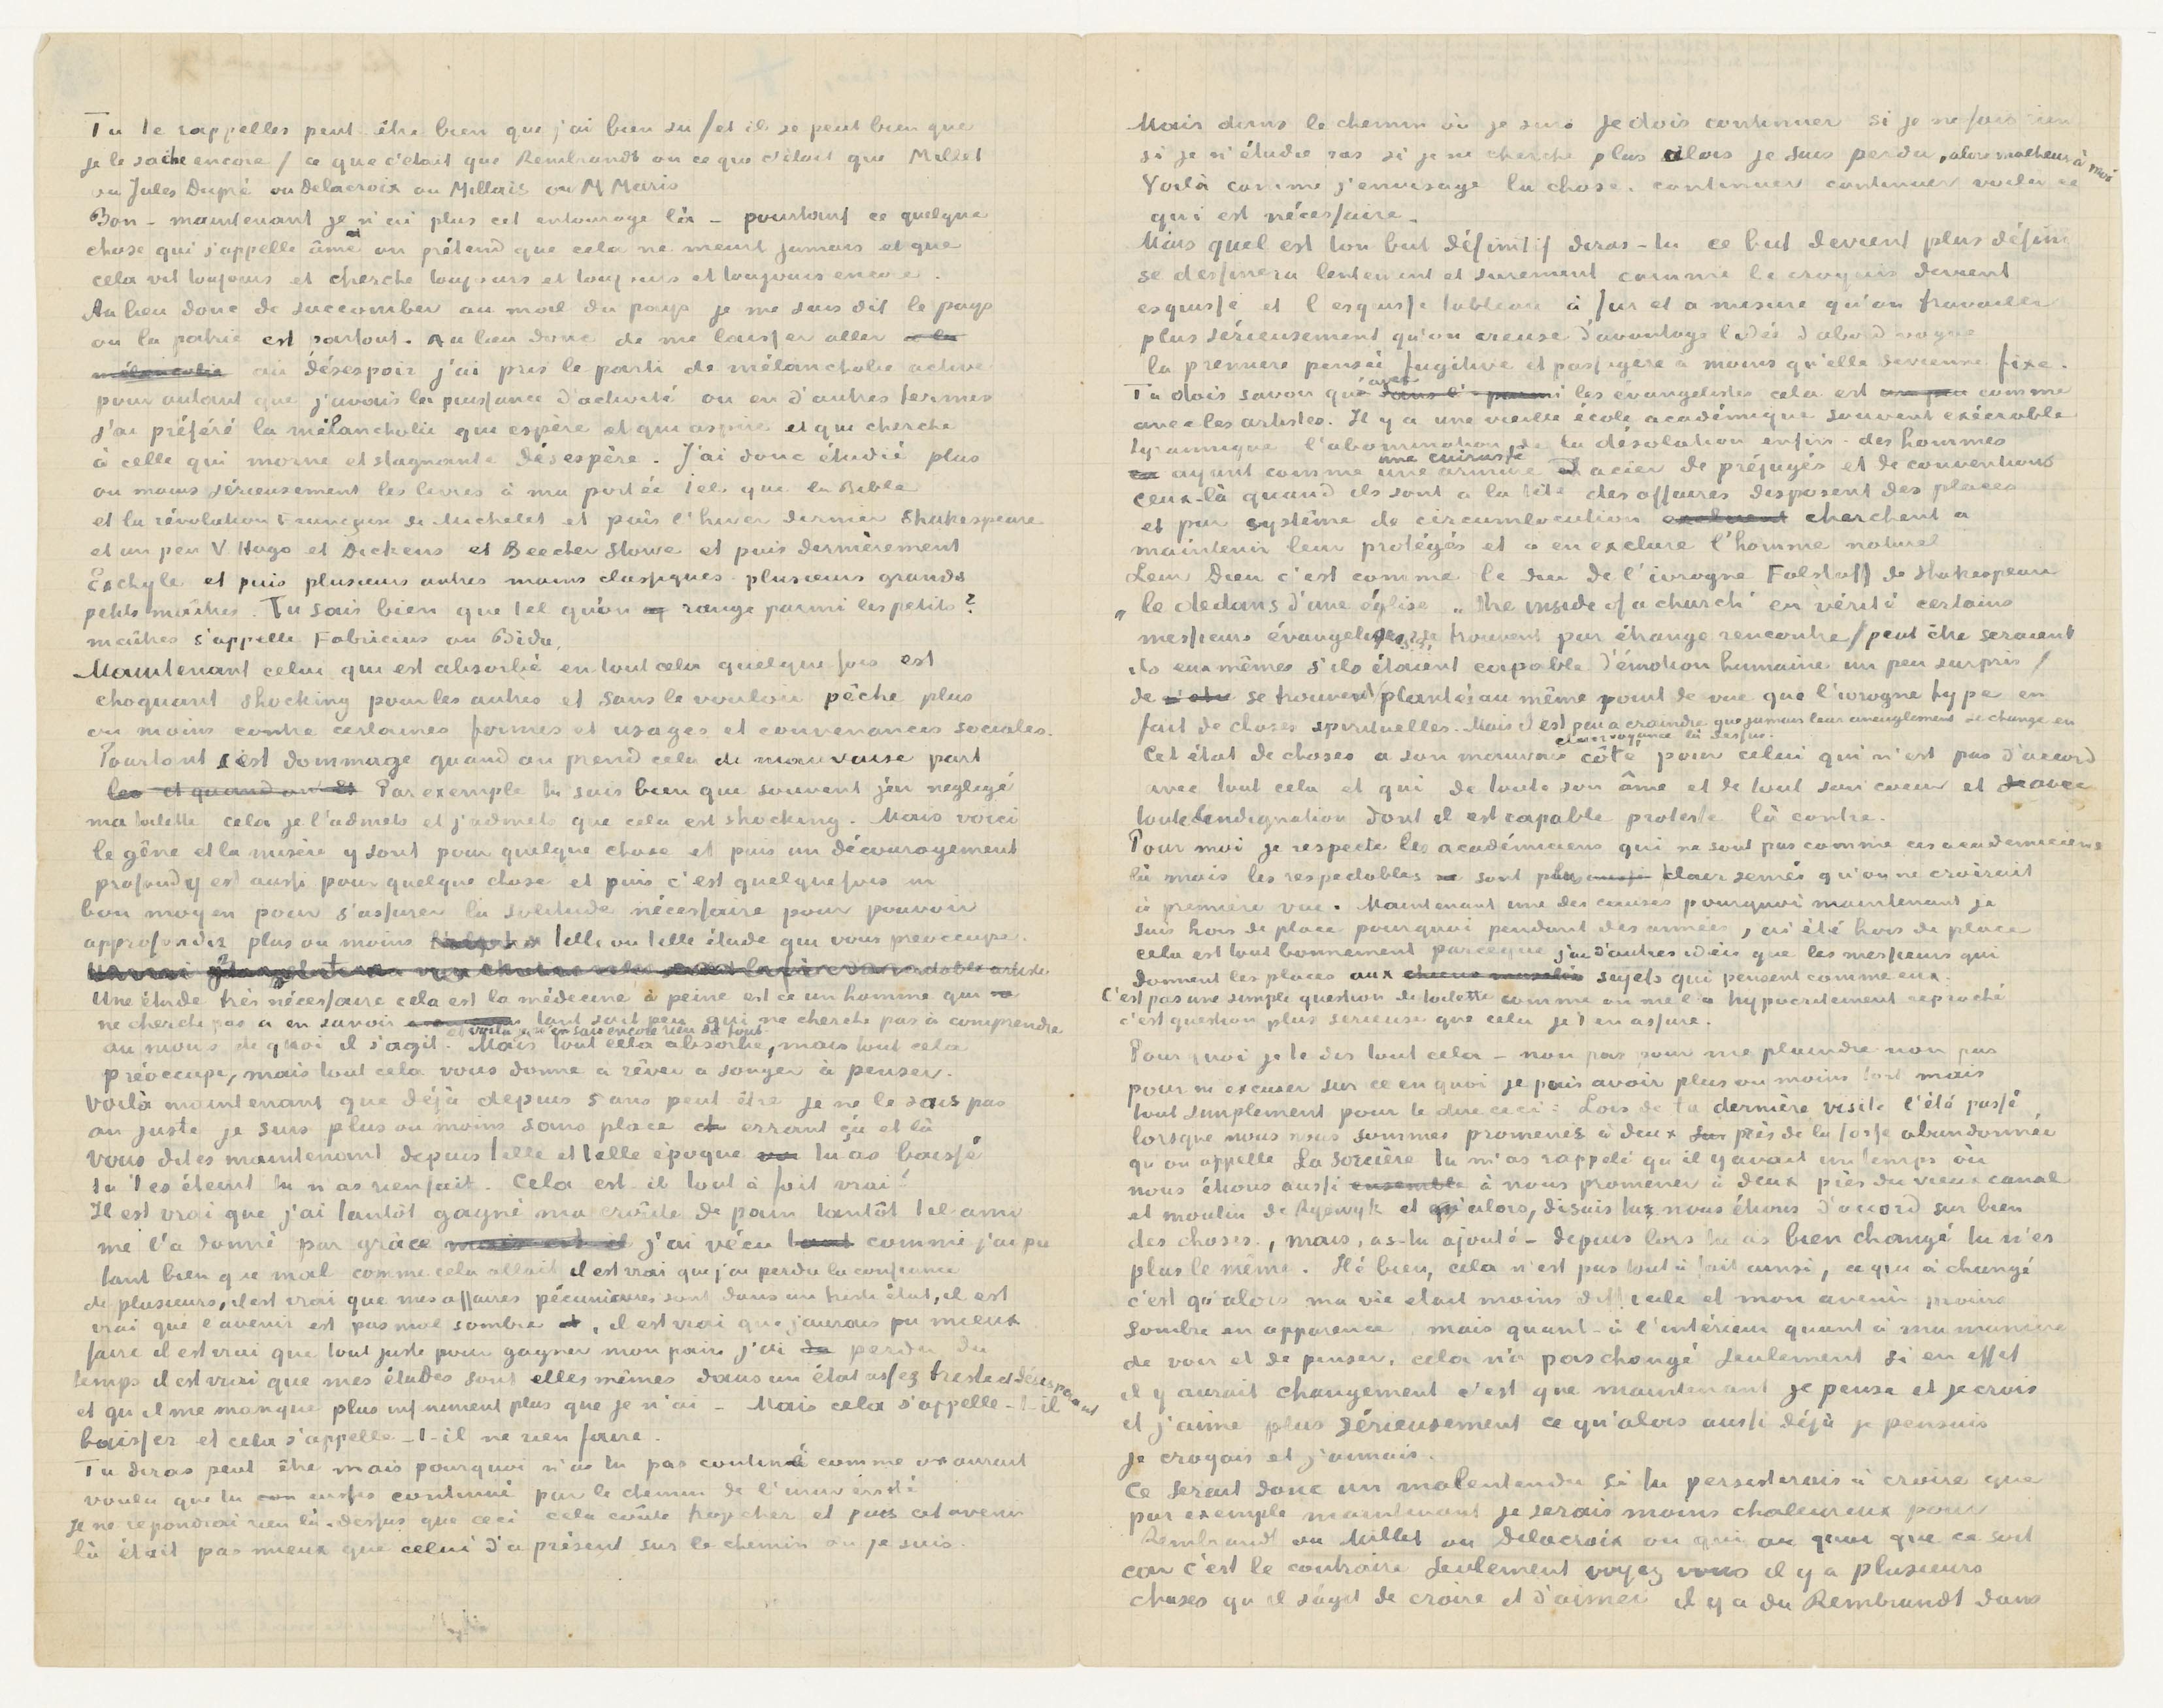 Tu te rappelles peut être bien que j'ai bien su /et il se peut bien que
je le sache encore/ ce que c'était que Rembrandt ou ce que c'était que Millet
ou Jules Dupré ou Delacroix ou Millais ou M Maris
Bon – maintenant je n'ai plus cet entourage là – pourtant ce quelque
chose qui s'appelle âme on prétend que cela ne meurt jamais et que
cela vit toujours et cherche toujours et toujours et toujours encore.
Au lieu donc de succomber au mal du pays je me suis dit le pays
ou la patrie est partout. Au lieu donc de me laisser aller à la
mélancolie au désespoir j'ai pris le parti de mélancholie active
pour autant que j'avais la puissance d'activité ou en d'autres termes
j'ai préféré la mélancholie qui espère et qui aspire et qui cherche
à celle qui morne et stagnante désespère. J'ai donc étudié plus
ou moins sérieusement les livres à ma portée tels que la Bible
et la révolution Française de Michelet et puis l'hiver dernier Shakespeare
et un peu V. Hugo et Dickens et Beecher Stowe et puis dernièrement
Eschyle et puis plusieurs autres moins classiques plusieurs grands
petits maîtres. Tu sais bien que tel qu'on range parmi les petits?
maîtres s'appelle Fabricius ou Bida.
Maintenant celui qui est absorbé en tout cela quelquefois est
choquant shocking pour les autres et sans le vouloir pêche plus
ou moins contre certaines formes et usages et convenances sociales.
Pourtant c'est dommage quand on prend cela de mauvaise part
Par exemple tu sais bien que souvent j'ai négligé
ma toilette cela je l'admets et j'admets que cela est shocking. Mais voici
le gêne et la misère y sont pour quelque chose et puis un découragement
profond y est aussi pour quelque chose et puis c'est quelquefois un
bon moyen pour s'assurer la solitude nécessaire pour pouvoir
approfondir plus ou moins telle ou telle étude qui vous préoccupe.
Une étude très nécessaire cela est la médecine à peine est ce un homme qui
ne cherche pas a en savoir tant soit peu qui ne cherche pas à comprendre
et voila je n'en sais encore rien du tout.
au moins de quoi il s'agit. Mais tout cela absorbe, mais tout cela
préoccupe, mais tout cela vous donne a rêver a songer à penser.
Voilà maintenant que déjà depuis 5 ans peut être je ne le sais pas
au juste je suis plus ou moins sans place errant çà et là
vous dites maintenant depuis telle et telle époque tu as baissé
tu t'es éteint tu n'as rien fait. Cela est il tout à fait vrai?
Il est vrai que j'ai tantôt gagné ma croûte de pain tantôt tel ami
me l'a donné par grâce mais est il j'ai vécu tant comme j'ai pu
tant bien que mal comme cela allait il est vrai que j'ai perdu la confiance
de plusieurs, il est vrai que mes affaires pécuniaires sont dans un triste état, il est
vrai que l'avenir est pas mal sombre, il est vrai que j'aurais pu mieux
faire il est vrai que tout juste pour gagner mon pain j'ai du perdu du
temps il est vrai que mes études sont elles mêmes dans un état assez triste et désesperant
et qu'il me manque plus infiniment plus que je n'ai – Mais cela s'appelle-t-il
baisser et cela s'appelle-t-il ne rien faire.
Tu diras peut être mais pourquoi n'as tu pas continué comme on aurait
voulu que tu eusses continué par le chemin de l'université
Je ne répondrai rien là-dessus que ceci cela coûte trop cher et puis cet avenir
là était pas mieux que celui d'à présent sur le chemin où je suis.
Mais dans le chemin où je suis Je dois continuer si je ne fais rien
si je n'étudie pas si je ne cherche plus alors je suis perdu, alors malheur à moi
Voilà comme j'envisage la chose. continuer continuer voilà ce
qui est nécessaire.
Mais quel est ton but définitif diras-tu ce but devient plus défini
se dessinera lentement et surement comme le croquis devient
esquisse et l'esquisse tableau à fur et a mesure qu'on travaille
plus sérieusement qu'on creuse davantage l'idée d'abord vague
la première pensée fugitive et passagère à moins qu'elle devienne fixe.
Tu dois savoir que avec les évangelistes cela est comme
avec les artistes. Il y a une vieille école académique souvent exécrable
tyrannique l'abomination de la désolation enfin – des hommes
ayant comme une cuirasse une armure d'acier de préjugés et de conventions
ceux-là quand ils sont a la tête des affaires disposent des places
et par système de circumlocution excluent cherchent a
maintenir leur protégés et a en exclure l'homme naturel
Leur Dieu c'est comme le dieu de l'ivrogne Falstaff de Shakespeare
„le dedans d'une église" „the inside of a church" en vérité certains
messieurs évangeliques se trouvent par étrange rencontre /peut être seraient
ils eux mêmes s'ils étaient capable d'émotion humaine un peu surpris/
de se trouver plantés au même point de vue que l'ivrogne type en
fait de choses spirituelles. Mais il est peu a craindre que jamais leur aveuglement se change en
clairvoyance là dessus.
Cet état de choses a son mauvais côté pour celui qui n'est pas d'accord
avec tout cela et qui de toute son âme et de tout son coeur et avec
toute l'indignation dont il est capable proteste là contre.
Pour moi je respecte les académiciens qui ne sont pas comme ces académiciens
là mais les respectables sont plus clair semés qu'on ne croirait
à première vue. Maintenant une des causes pourquoi maintenant je
suis hors de place pourquoi pendant des années j'ai été hors de place
cela est tout bonnement parceque j'ai d'autres idées que les messieurs qui
donnent les places aux sujets qui pensent comme eux.
C'est pas une simple question de toilette comme on me l'a hypocritement reproché
c'est question plus sérieuse que cela je t'en assure.
Pourquoi je te dis tout cela – non pas pour me plaindre non pas
pour m'excuser sur ce en quoi je puis avoir plus ou moins tort mais
tout simplement pour te dire ceci: Lors de ta dernière visite l'été passé
lorsque nous nous sommes promenés à deux près de la fosse abandonnée
qu'on appelle La Sorcière tu m'as rappelé qu'il y avait un temps où
nous étions aussi ensemble à nous promener à deux près du vieux canal
et moulin de Ryswyk et qu'alors, disais tu, nous étions d'accord sur bien
des choses, mais, as-tu ajouté – depuis lors tu as bien changé tu n'es
plus le même. Hé bien, cela n'est pas tout à fait ainsi, ce qui à changé
c'est qu'alors ma vie était moins difficile et mon avenir moins
sombre en apparence mais quant-à l'intérieur quant à ma manière
de voir et de penser, cela n'a pas changé seulement si en effet
il y aurait changement c'est que maintenant je pense et je crois
et j'aime plus sérieusement ce qu'alors aussi déjà je pensais
je croyais et j'aimais.
Ce serait donc un malentendu si tu persisterais à croire que
par exemple maintenant je serais moins chaleureux pour
Rembrandt ou Millet ou Delacroix ou qui ou quoi que ce soit
car c'est le contraire seulement voyez vous il y a plusieurs
choses qu'il s'agit de croire et d'aimer il y a du Rembrandt dans